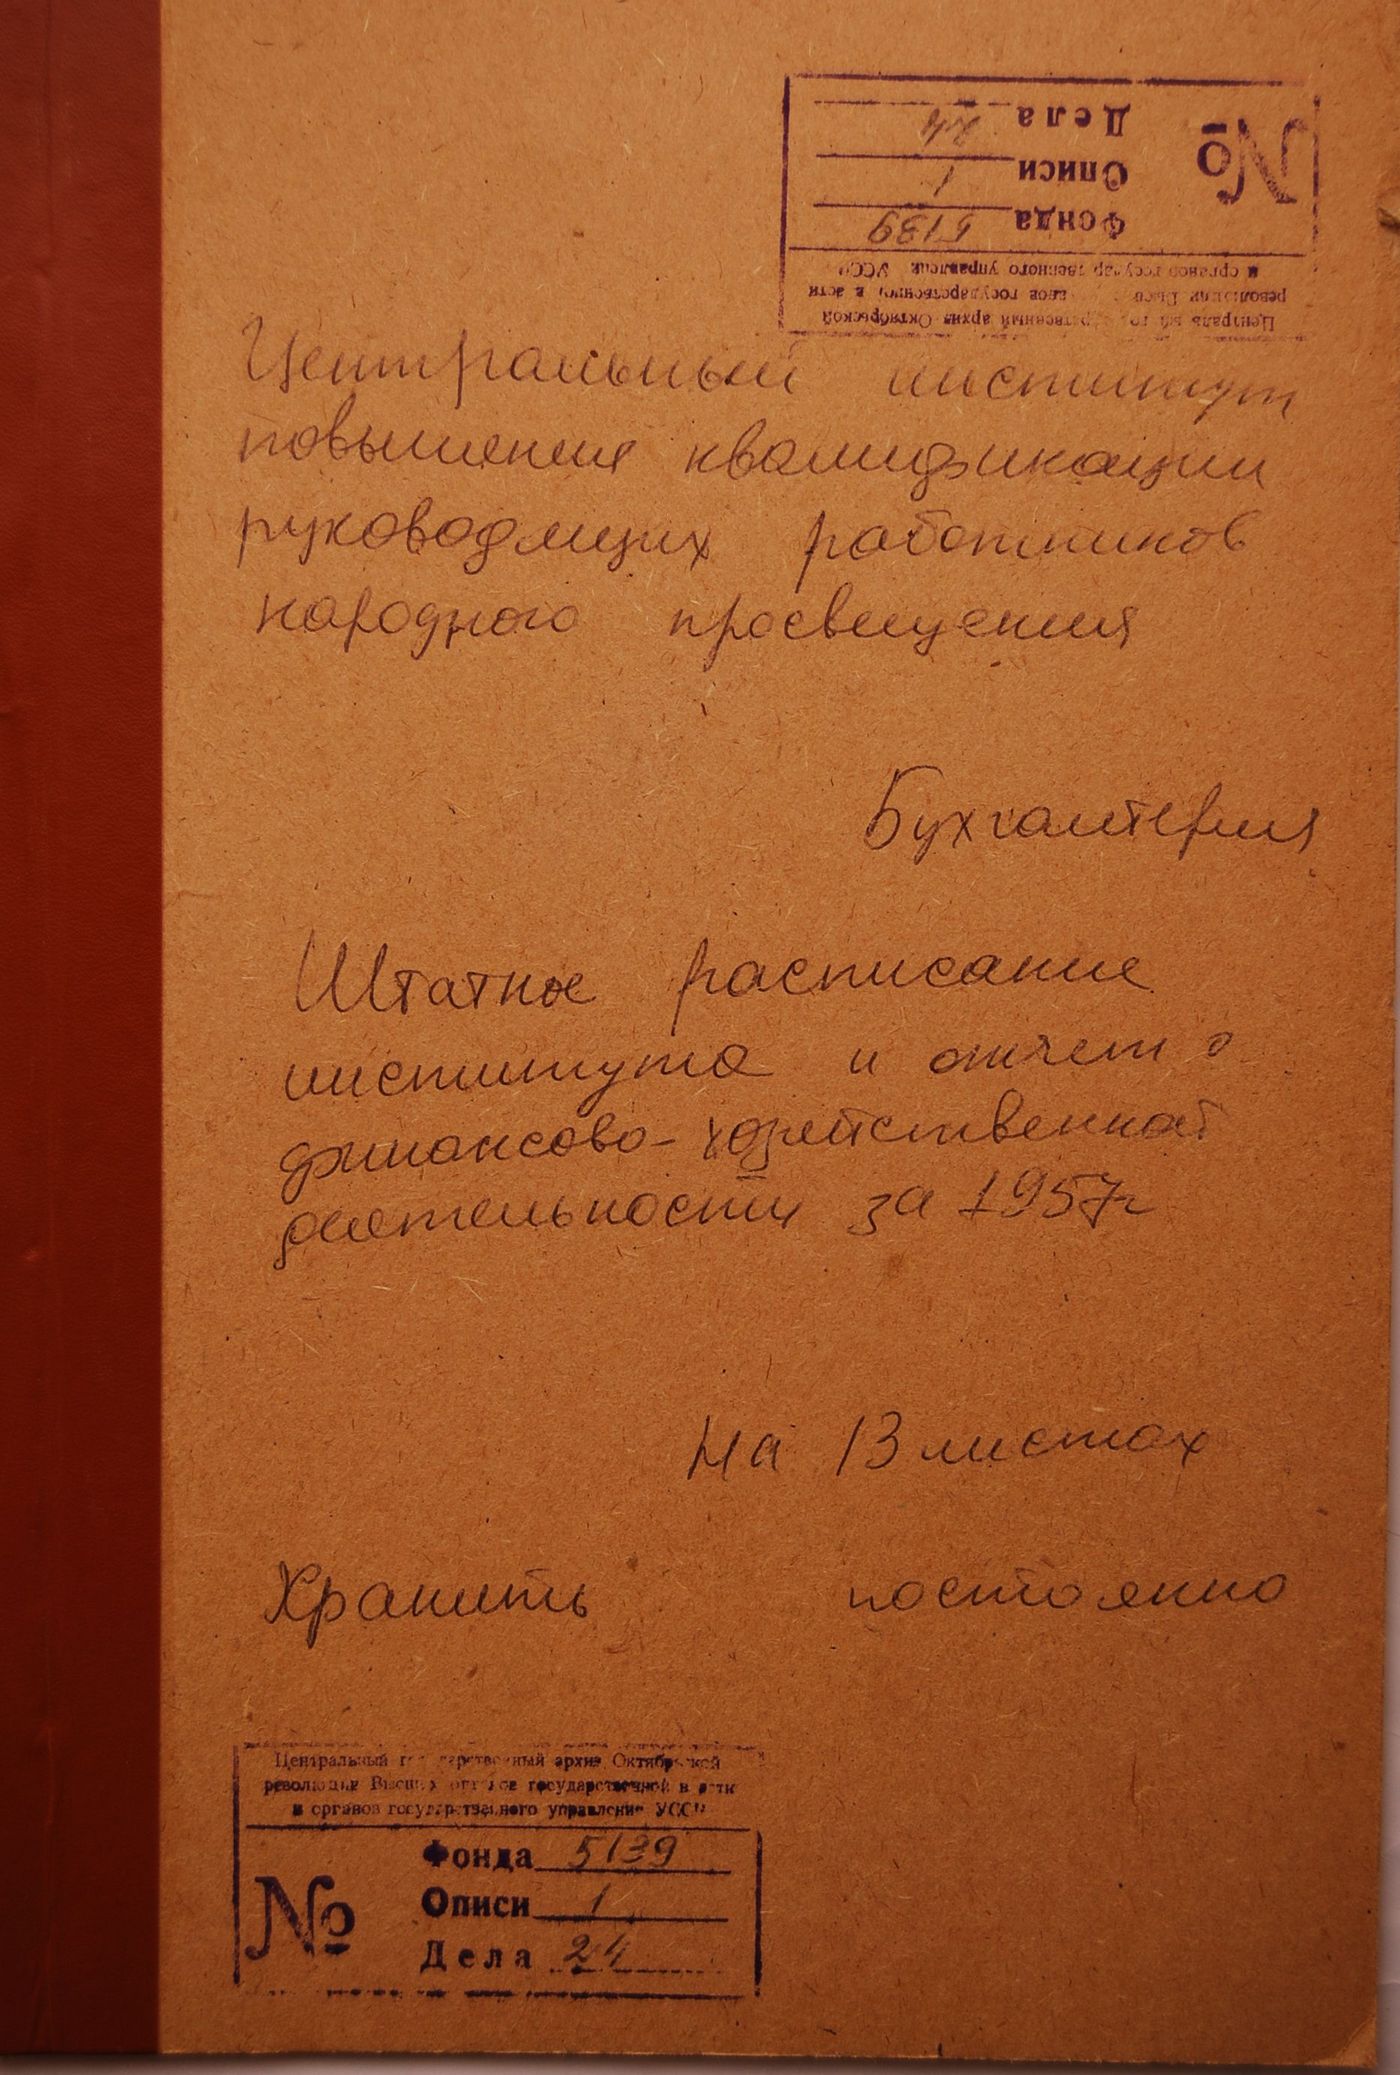 Центральный государственный архив Октябрьской
революции Высших органов государственной власти
и органов государственного управления УССР
№
Фонда 5139
Описи 1
Дела 24
Центральный институт
повышения квалификации
руководящих работников
народного просвещения
Бухгалтерия
Штатное расписание
института и отчет о
финансово-хозяйственной
деятельности за 1957г
На 13 листах
Хранить постоянно
Центральный государственный архив Октябрьской
революции Высших органов государственной власти
и органов государственного управления УССР
№
Фонда 5139
Описи 1
Дела 24